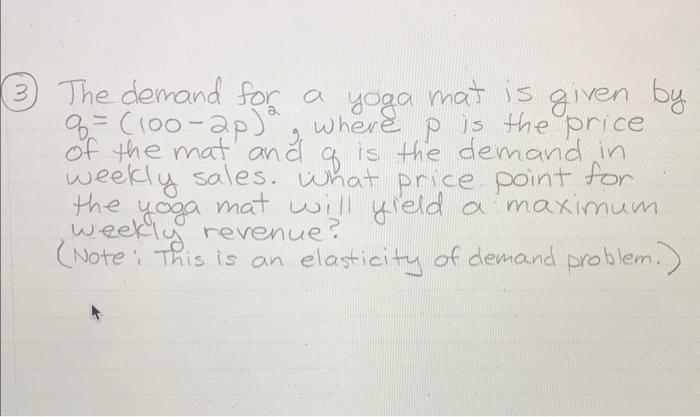 3 The demand for a yoga mat is given by
q = (100-2p)², where p is the price
of the mat and q is the demand in
weekly sales. What price point for
the yoga mat will yield a maximum
weekly revenue?
(Note: This is an elasticity of demand problem.)